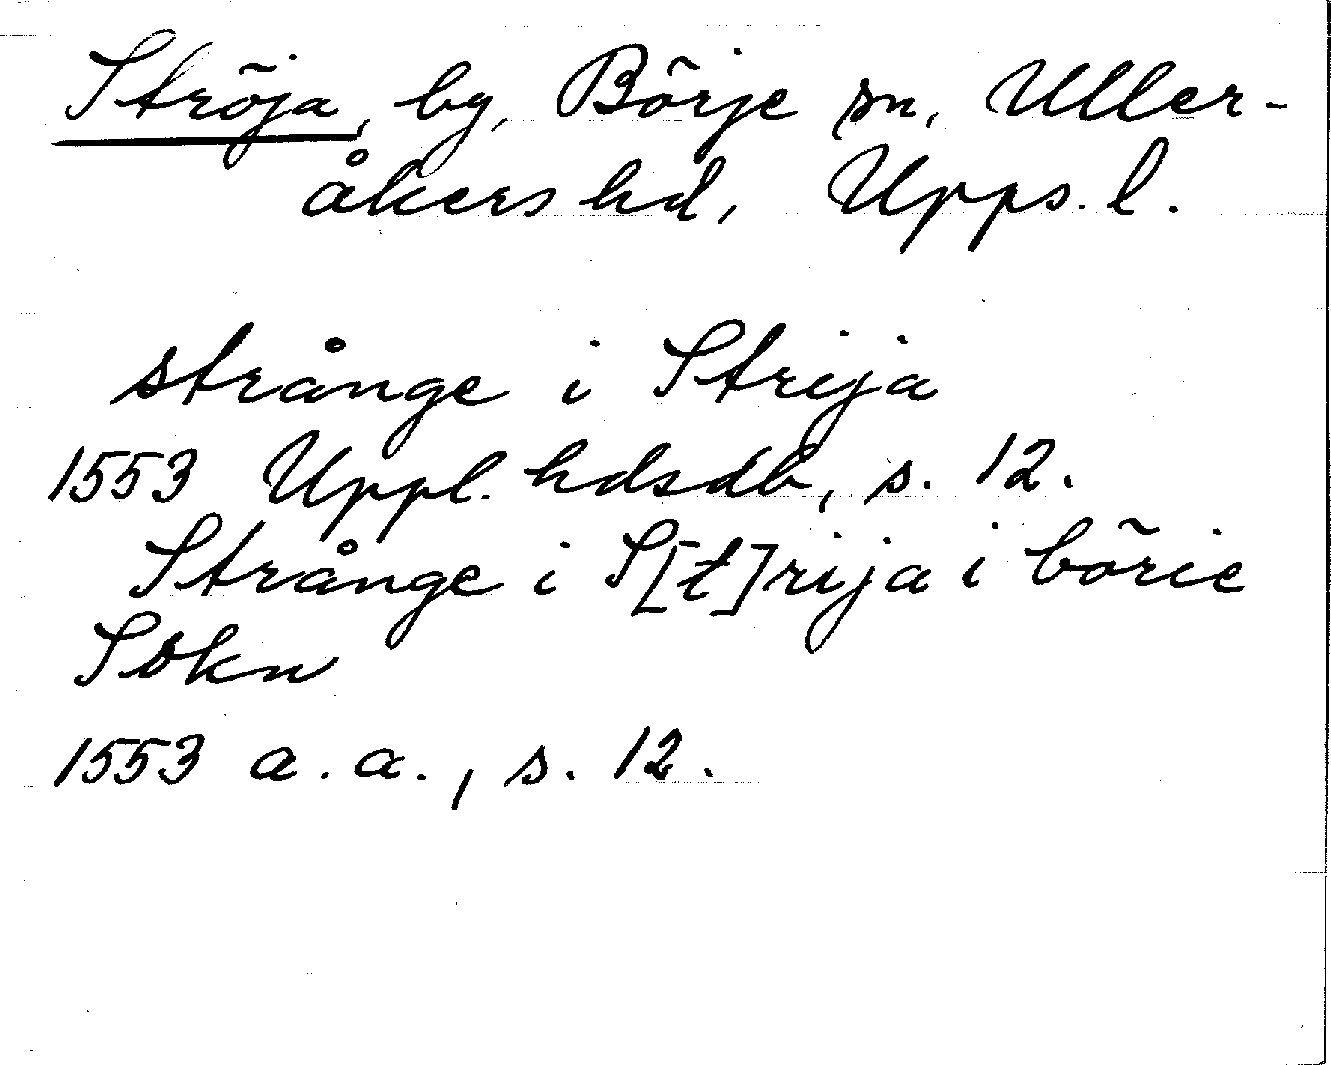 Ströja, by, Börje sn, Uller-
åkers hd, Upps. l.
strånge i Strija
1553 Uppl. hdsdb, s. 12.
Strånge i S[t]rija i börie
Sokn
1553 a. a., s. 12.